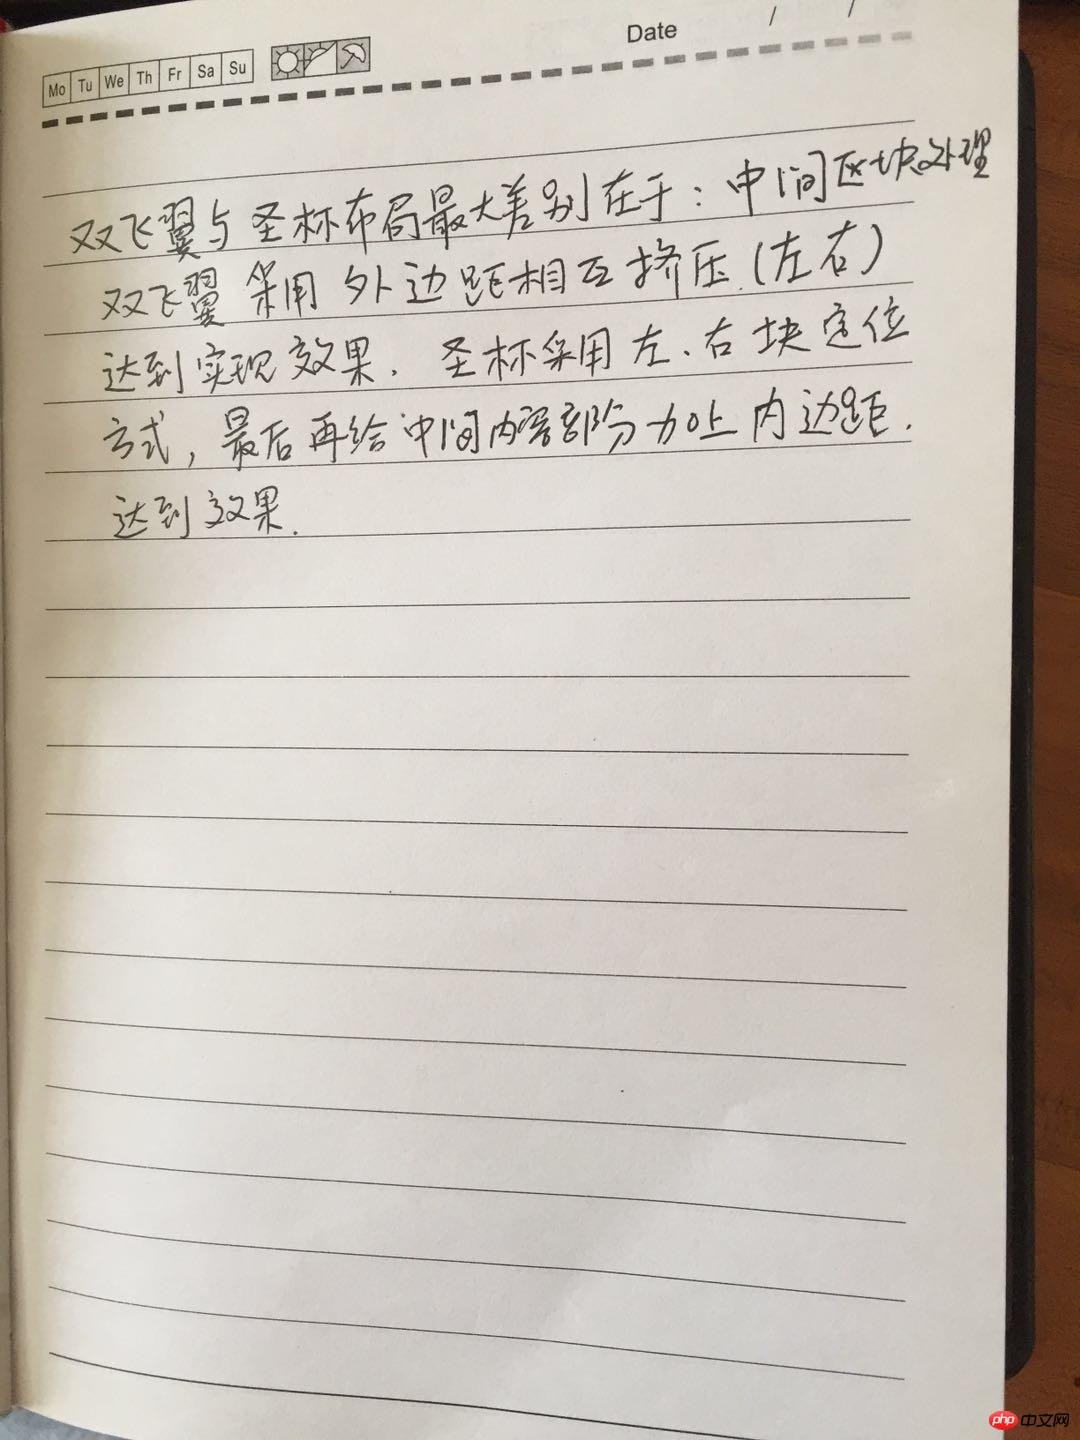 Date / /
Mo Tu We Th Fr Sa Su
双飞翼与圣杯布局最大差别在于：中间区块处理
双飞翼采用外边距相互挤压.(左右)
达到实现效果. 圣杯采用左、右块定位
方式，最后再给中间内容部分加上内边距.
达到效果.
php中文网